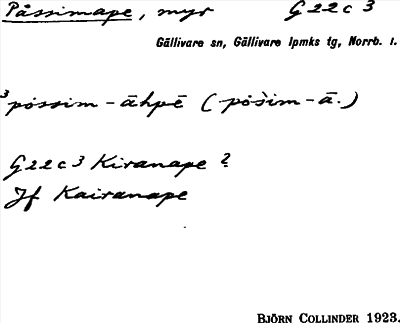 Påssimape, myr G22c3
Gällivare sn, Gällivare lpmks tg, Norrb. l.
³possim-āhpē (pòs̀im-ā.)
G22c3 Kiranape ?
Jf Kairanape
BJÖRN COLLINDER 1923.